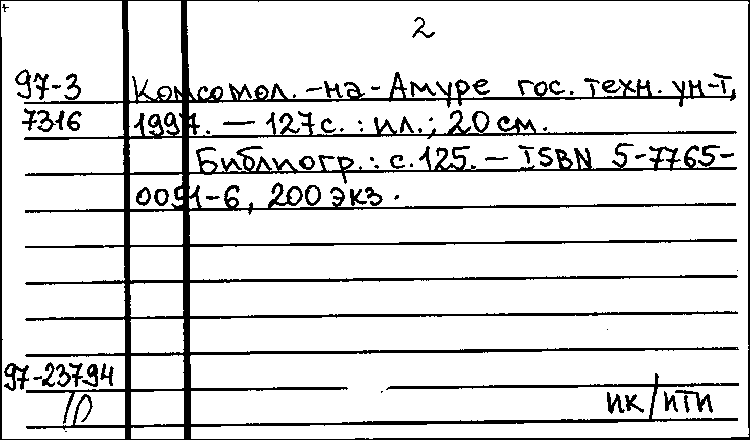 2
97-3 Комсомол.-на-Амуре гос. техн. ун-т,
7316 1997. — 127с. : ил.; 20см.
Библиогр.: с.125. — ISBN 5-7765-
0051-6, 200 экз.
97-23794
10
ик/ити